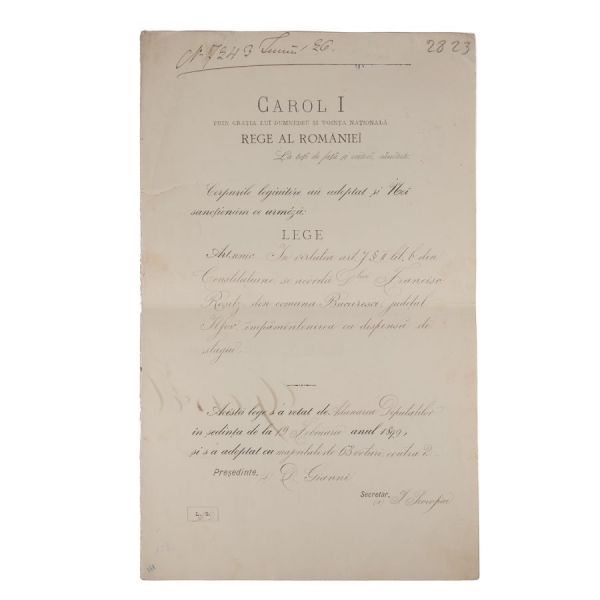 No 7243 Iunie 26.
2823
CAROL I
PRIN GRAȚIA LUI DUMNEDEU ȘI VOINȚA NAȚIONALĂ
REGE AL ROMÂNIEĬ
La toți de față și viitori, sănătate.
Corpurile legiuitóre au adoptat și Noi
sancționăm ce urméză:
LEGE
Art. unic. In virtutea art. 7 § II lit. b din
Constituțiune, se acordă Francisc
din comuna Bucuresci, județul
Ilfov, împământenirea cu dispensă de
stagiu.
Acéstă lege s'a votat de Adunarea Deputaților
în ședința de la 19 Februarie anul 1899,
și s'a adoptat cu majoritate de 63 voturi, contra 2.
Președinte, D. Gianni
Secretar,
L. S.